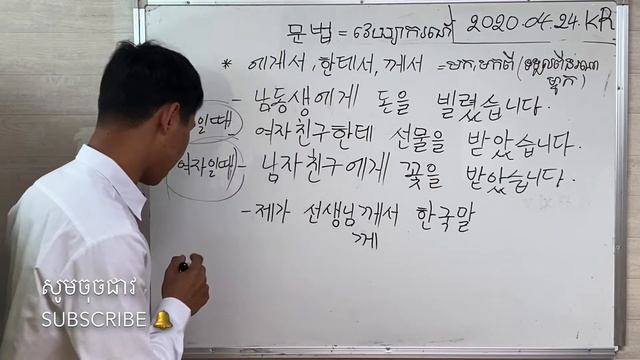 문법 = វេយ្យាករណ៍ 2020.04.24.KR
* 에게서, 한테서, 께서 = មក, មកពី (ទទួលពីនរណា
ម្នាក់)
- 남동생에게 돈을 빌렸습니다.
일때 여자친구한테 선물을 받았습니다.
여자일때 - 남자친구에게 꽃을 받았습니다.
- 제가 선생님께서 한국말
께
សូមចុចជាវ
SUBSCRIBE 🔔